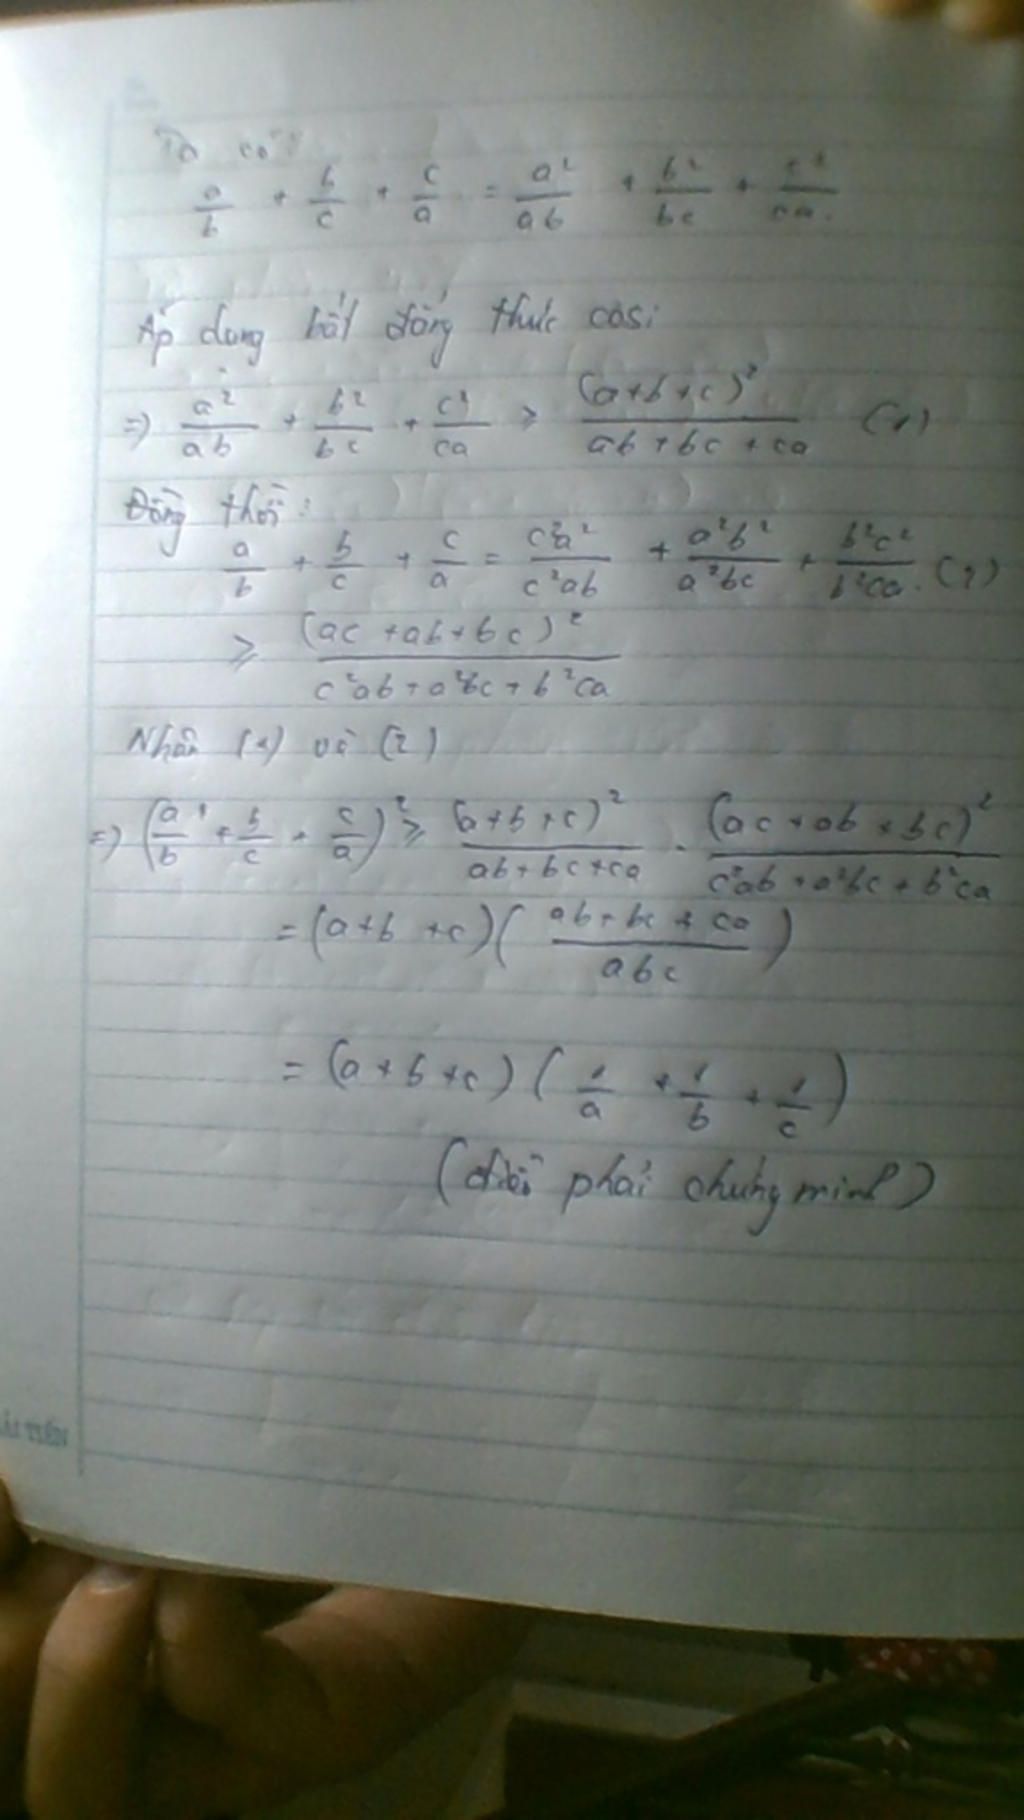 Ta có:
a/b + b/c + c/a = a²/ab + b²/bc + c²/ca.
Áp dụng bất đẳng thức côsi
=> a²/ab + b²/bc + c²/ca ≥ (a+b+c)²/ab+bc+ca (1)
Đồng thời:
a/b + b/c + c/a = c²a²/c²ab + a²b²/a²bc + b²c²/b²ca. (2)
≥ (ac+ab+bc)²/c²ab+a²bc+b²ca
Nhân (1) và (2)
=> (a/b + b/c + c/a)² ≥ (a+b+c)²/ab+bc+ca . (ac+ab+bc)²/c²ab+a²bc+b²ca
= (a+b+c)(ab+bc+ca/abc)
= (a+b+c)(1/a + 1/b + 1/c)
(điều phải chứng minh)
ẢI TIẾN